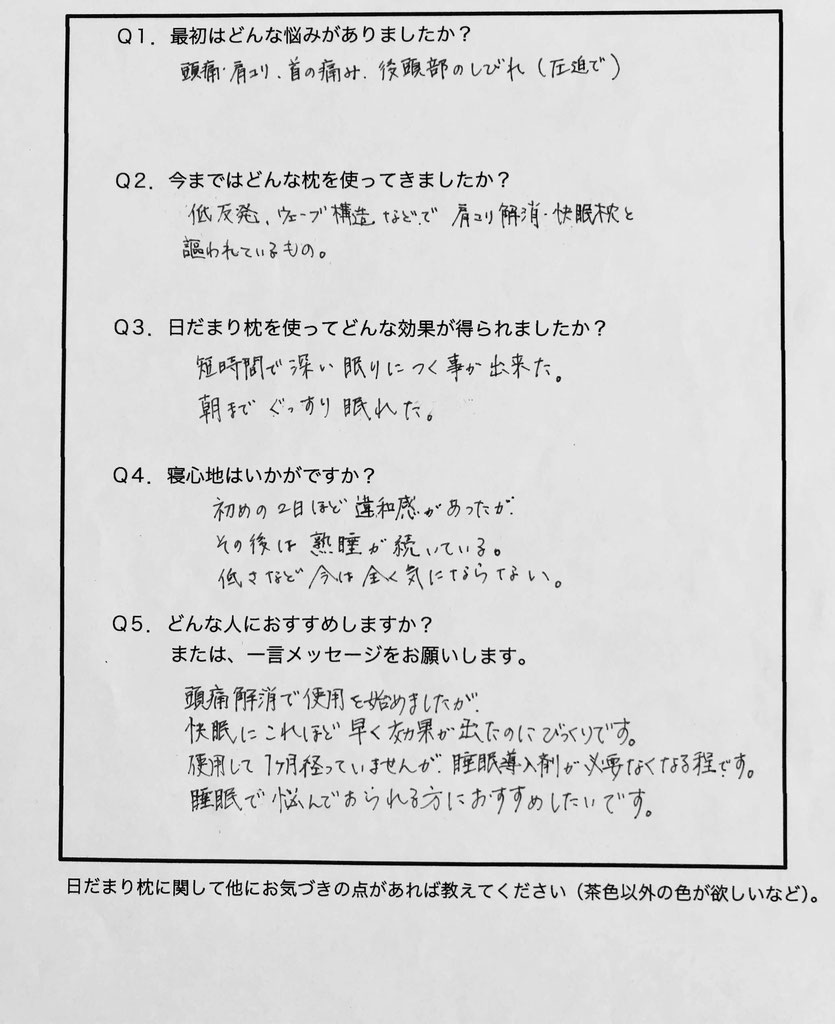 Q1．最初はどんな悩みがありましたか？
頭痛・肩コリ、首の痛み、後頭部のしびれ（圧迫で）
Q2．今まではどんな枕を使ってきましたか？
低反発、ウェーブ構造などで肩コリ解消・快眠枕と
謳われているもの。
Q3．日だまり枕を使ってどんな効果が得られましたか？
短時間で深い眠りにつく事が出来た。
朝までぐっすり眠れた。
Q4．寝心地はいかがですか？
初めの2日ほど違和感があったが、
その後は熟睡が続いている。
低さなど今は全く気にならない。
Q5．どんな人におすすめしますか？
または、一言メッセージをお願いします。
頭痛解消で使用を始めましたが、
快眠にこれほど早く効果が出たのにびっくりです。
使用して1ヶ月経っていませんが、睡眠導入剤が必要なくなる程です。
睡眠で悩んでおられる方におすすめしたいです。
日だまり枕に関して他にお気づきの点があれば教えてください（茶色以外の色が欲しいなど）。